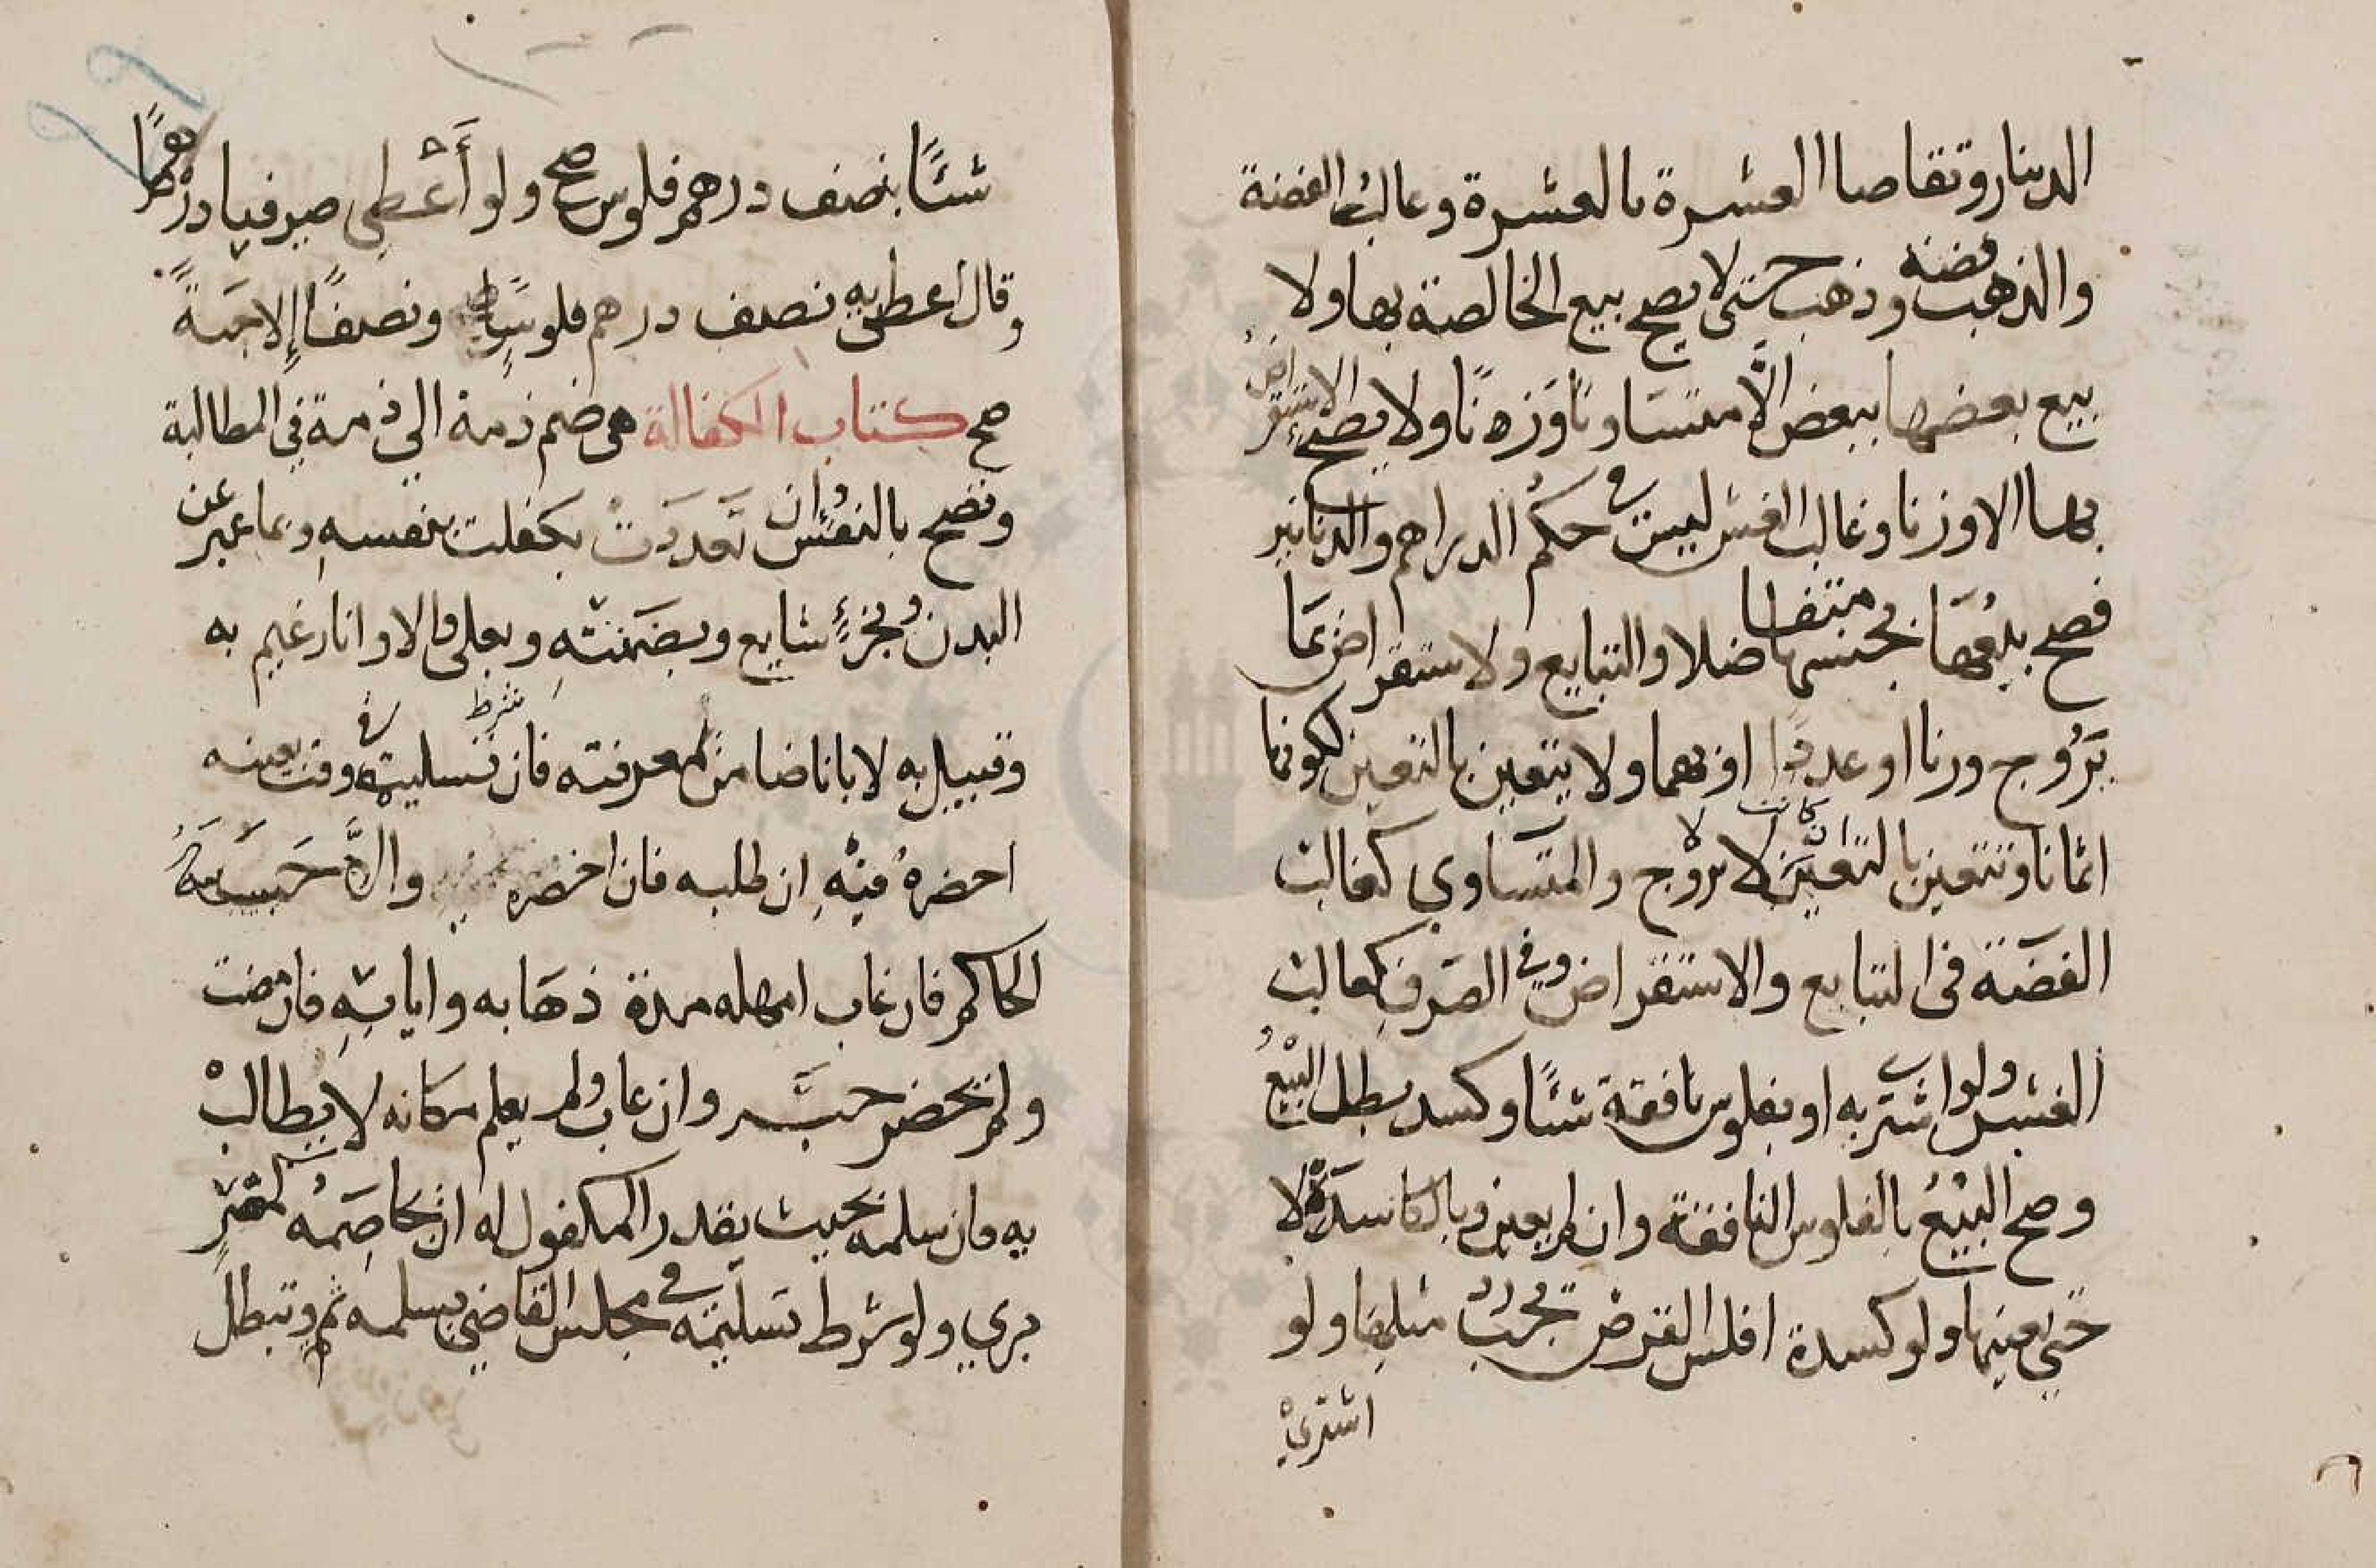 الدينار وتقاصا العشرة بالعشرة وغالب الفضة
والذهب فضة وذهب حتى لا يصح بيع الخالصة بها ولا
بيع بعضها ببعض الّا متساويًا وَزنًا ولا يصح الاستقراض
بها الا وزنا وغالب الغش ليس في حكم الدراهم والدنانير
فصح بيعُهَا بجنسها متفاضلا والتبايع ولاستقراض بمَا
يَرُوج وزنا او عددًا او بهما ولا يتعين بالتعين لكونها
اثمانا وتتعين بالتعين ان كانت لا تروج والمتسَاوي كغالب
الفضَة فى التبايع والاستقراض وفي الصَرفِ كغالب
الغش ولو اشترى به او بفلوس نافقة شئًا وكسد بطل البيْعُ
وصح البيْعُ بالفلوس النافقة وان لم يعين وبالكاسدَةْ لا
حَتي يعينها ولو كسدة افلس القرض تجب رد مثلها ولو
اشتريْ
شئًا بنصف درهم فلوس صح ولو أَعْطى صيرفيا درْهمًا
وقال اعطى به نصف درهم فلوسًا ونصفًا إلا حَبةً
صح كتاب الكفالة هى ضم ذمة الي ذمة في المطالبة
وتصح بالنفس وان تَعددَتْ بكفلت بنفسهِ وبما عبر عن
البدن وبجزءٍ شايع وبضَمنتهِ وبعلى والا وانا زعيم به
وقبيل به لا بانا ضامن لمعرفته فان شرط تسليمه في وقت بعينه
احضرهُ فيْهِ ان طلبه فان احضره والاَّ حَبسَهُ
الحاكم فان غاب امهله مدة ذهَابه وايابهِ فان مضت
ولم يحضر حبَسه وان غاب ولم يعلم مكانه لا يطالبْ
به فان سلمه بحيث يقدر المكفول له ان يخاصِمَهُ كمصْرٍ
بري ولو شرط تسليمَه في مجلس القاضي يسلمه ثم وتبطل